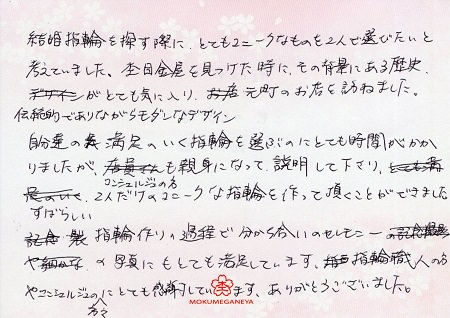 結婚指輪を探す際に、とてもユニークなものを2人で選びたいと
考えていました。杢目金屋を見つけた時に、その背景にある歴史、
デザインがとても気に入り、お店 元町のお店を訪ねました。
伝統的でありながらモダンなデザイン
自分達の 満足のいく指輪を選ぶのにとても時間がかか
りましたが、店員さんも親身になって、説明して下さり、
コンシェルジュの方
2人だけのユニークな指輪を作って頂くことができました
すばらしい
記念 指輪作りの過程で分かち合いのセレモニー
や の写真にもとても満足しています。指輪職人の方
やコンシェルジュの にとても感謝しています。ありがとうございました。
方々
MOKUMEGANEYA